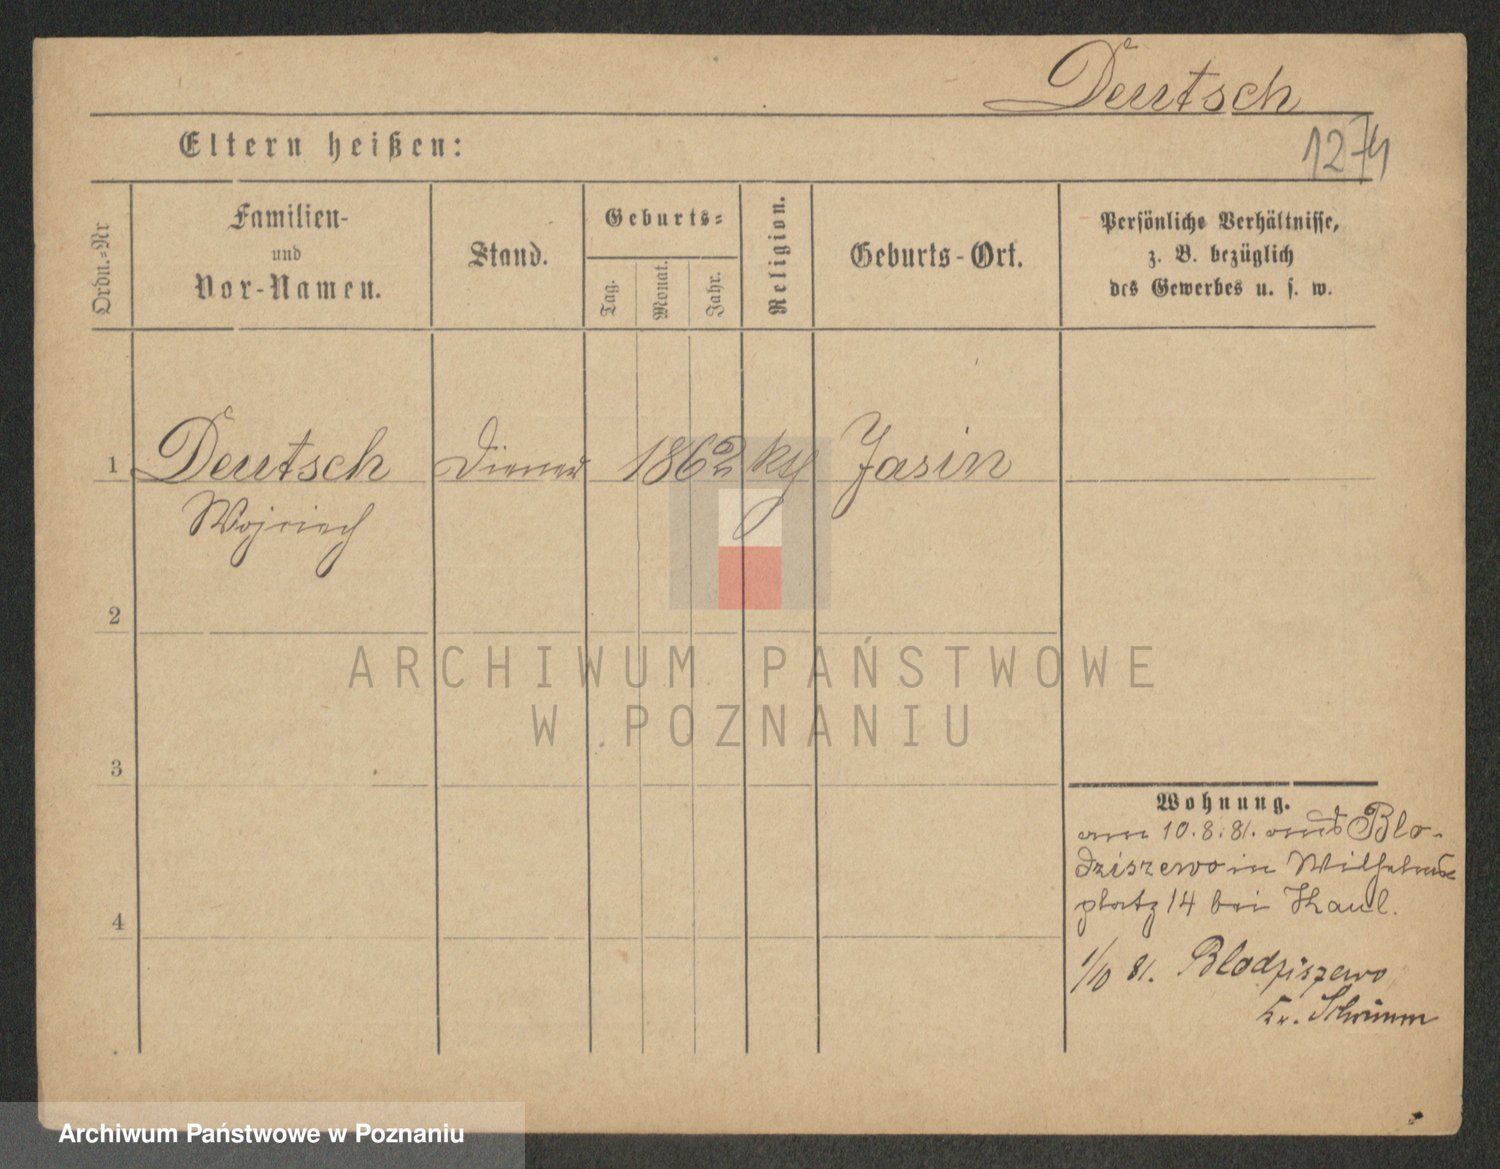 Deutsch
Eltern heißen:
1274
Ordn.-Nr
Familien-
und
Vor-Namen.
Stand.
Geburts-
Tag.
Monat.
Jahr.
Religion.
Geburts-Ort.
Persönliche Verhältnisse,
z. B. bezüglich
des Gewerbes u. s. w.
1 Deutsch Diener 1862 kth Jasin
Wojciech
2
3
4
Wohnung.
am 10.8.81. aus Blo-
dziszewo in Wilhelms
platz 14 bei Kaul.
1/10 81. Blodziszewo
Kr. Schrimm
ARCHIWUM PAŃSTWOWE
W POZNANIU
Archiwum Państwowe w Poznaniu